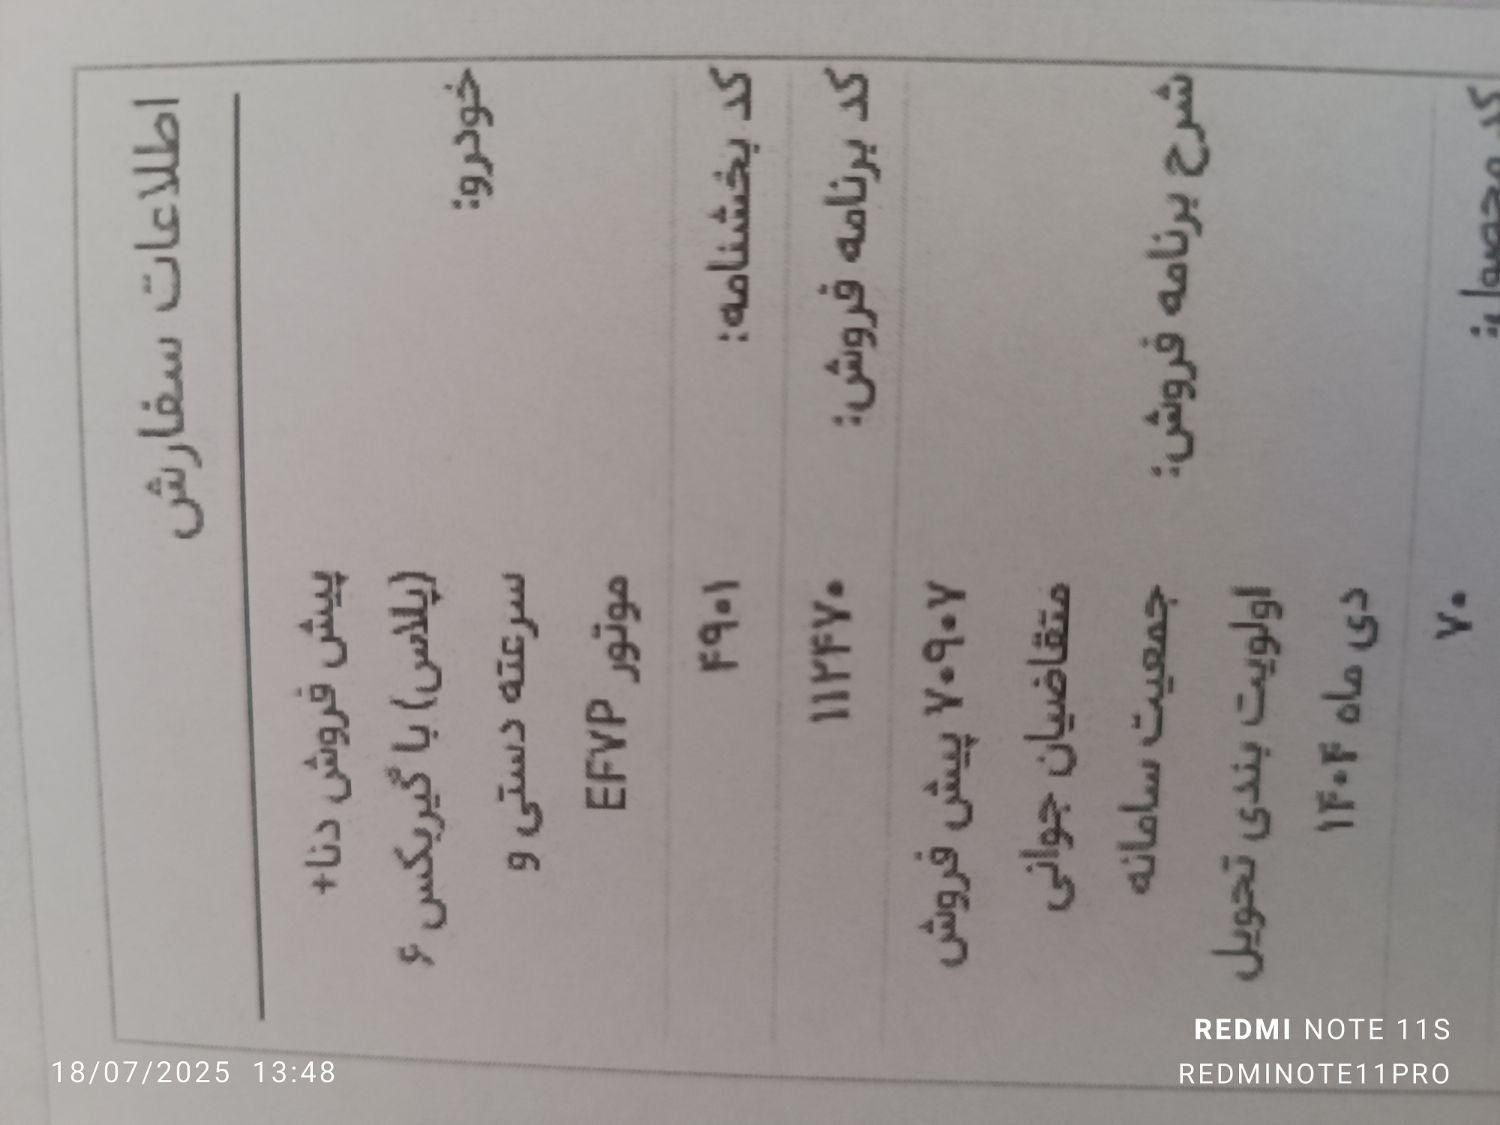 اطلاعات سفارش
خودرو:
پیش فروش دنا+
(پلاس) با گیربکس ۶
سرعته دستی و
موتور EF۷P
کد بخشنامه:
۴۹۰۱
کد برنامه فروش:
۱۱۲۴۷۰
شرح برنامه فروش:
۷۰۹۰۷ پیش فروش
متقاضیان جوانی
جمعیت سامانه
اولویت بندی تحویل
دی ماه ۱۴۰۴
کد محصول:
۷۰
REDMI NOTE 11S
REDMINOTE11PRO
18/07/2025 13:48